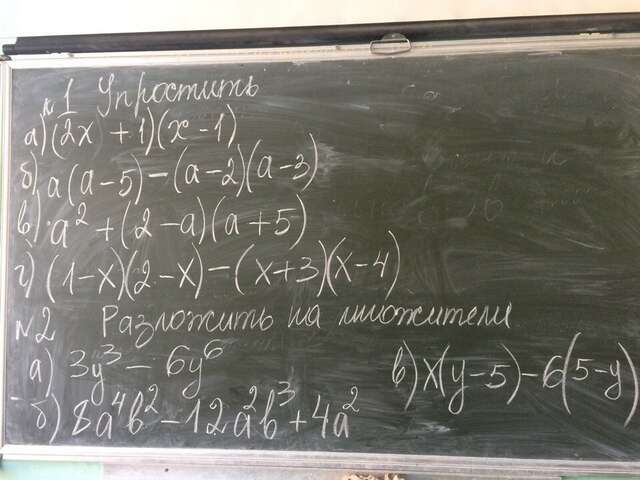 №1 Упростить
а) (2x + 1)(x - 1)
б) a(a - 5) - (a - 2)(a - 3)
в) a² + (2 - a)(a + 5)
г) (1 - x)(2 - x) - (x + 3)(x - 4)
№2 Разложить на множители
а) 3y³ - 6y⁶
в) x(y - 5) - 6(5 - y)
б) 8a⁴b² - 12a²b³ + 4a²